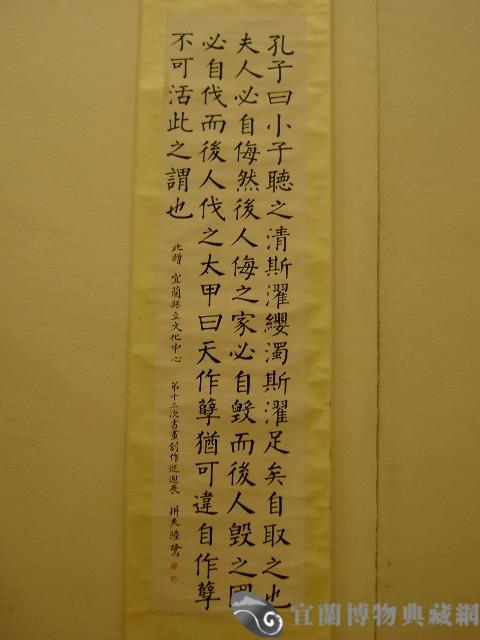 孔子曰小子聽之清斯濯纓濁斯濯足矣自取之也
夫人必自侮然後人侮之家必自毀而後人毀之國
必自伐而後人伐之太甲曰天作孽猶可違自作孽
不可活此之謂也
此贈 宜蘭縣立文化中心 第十三次書畫創作巡迴展 耕夫陸鷺
宜蘭博物典藏網